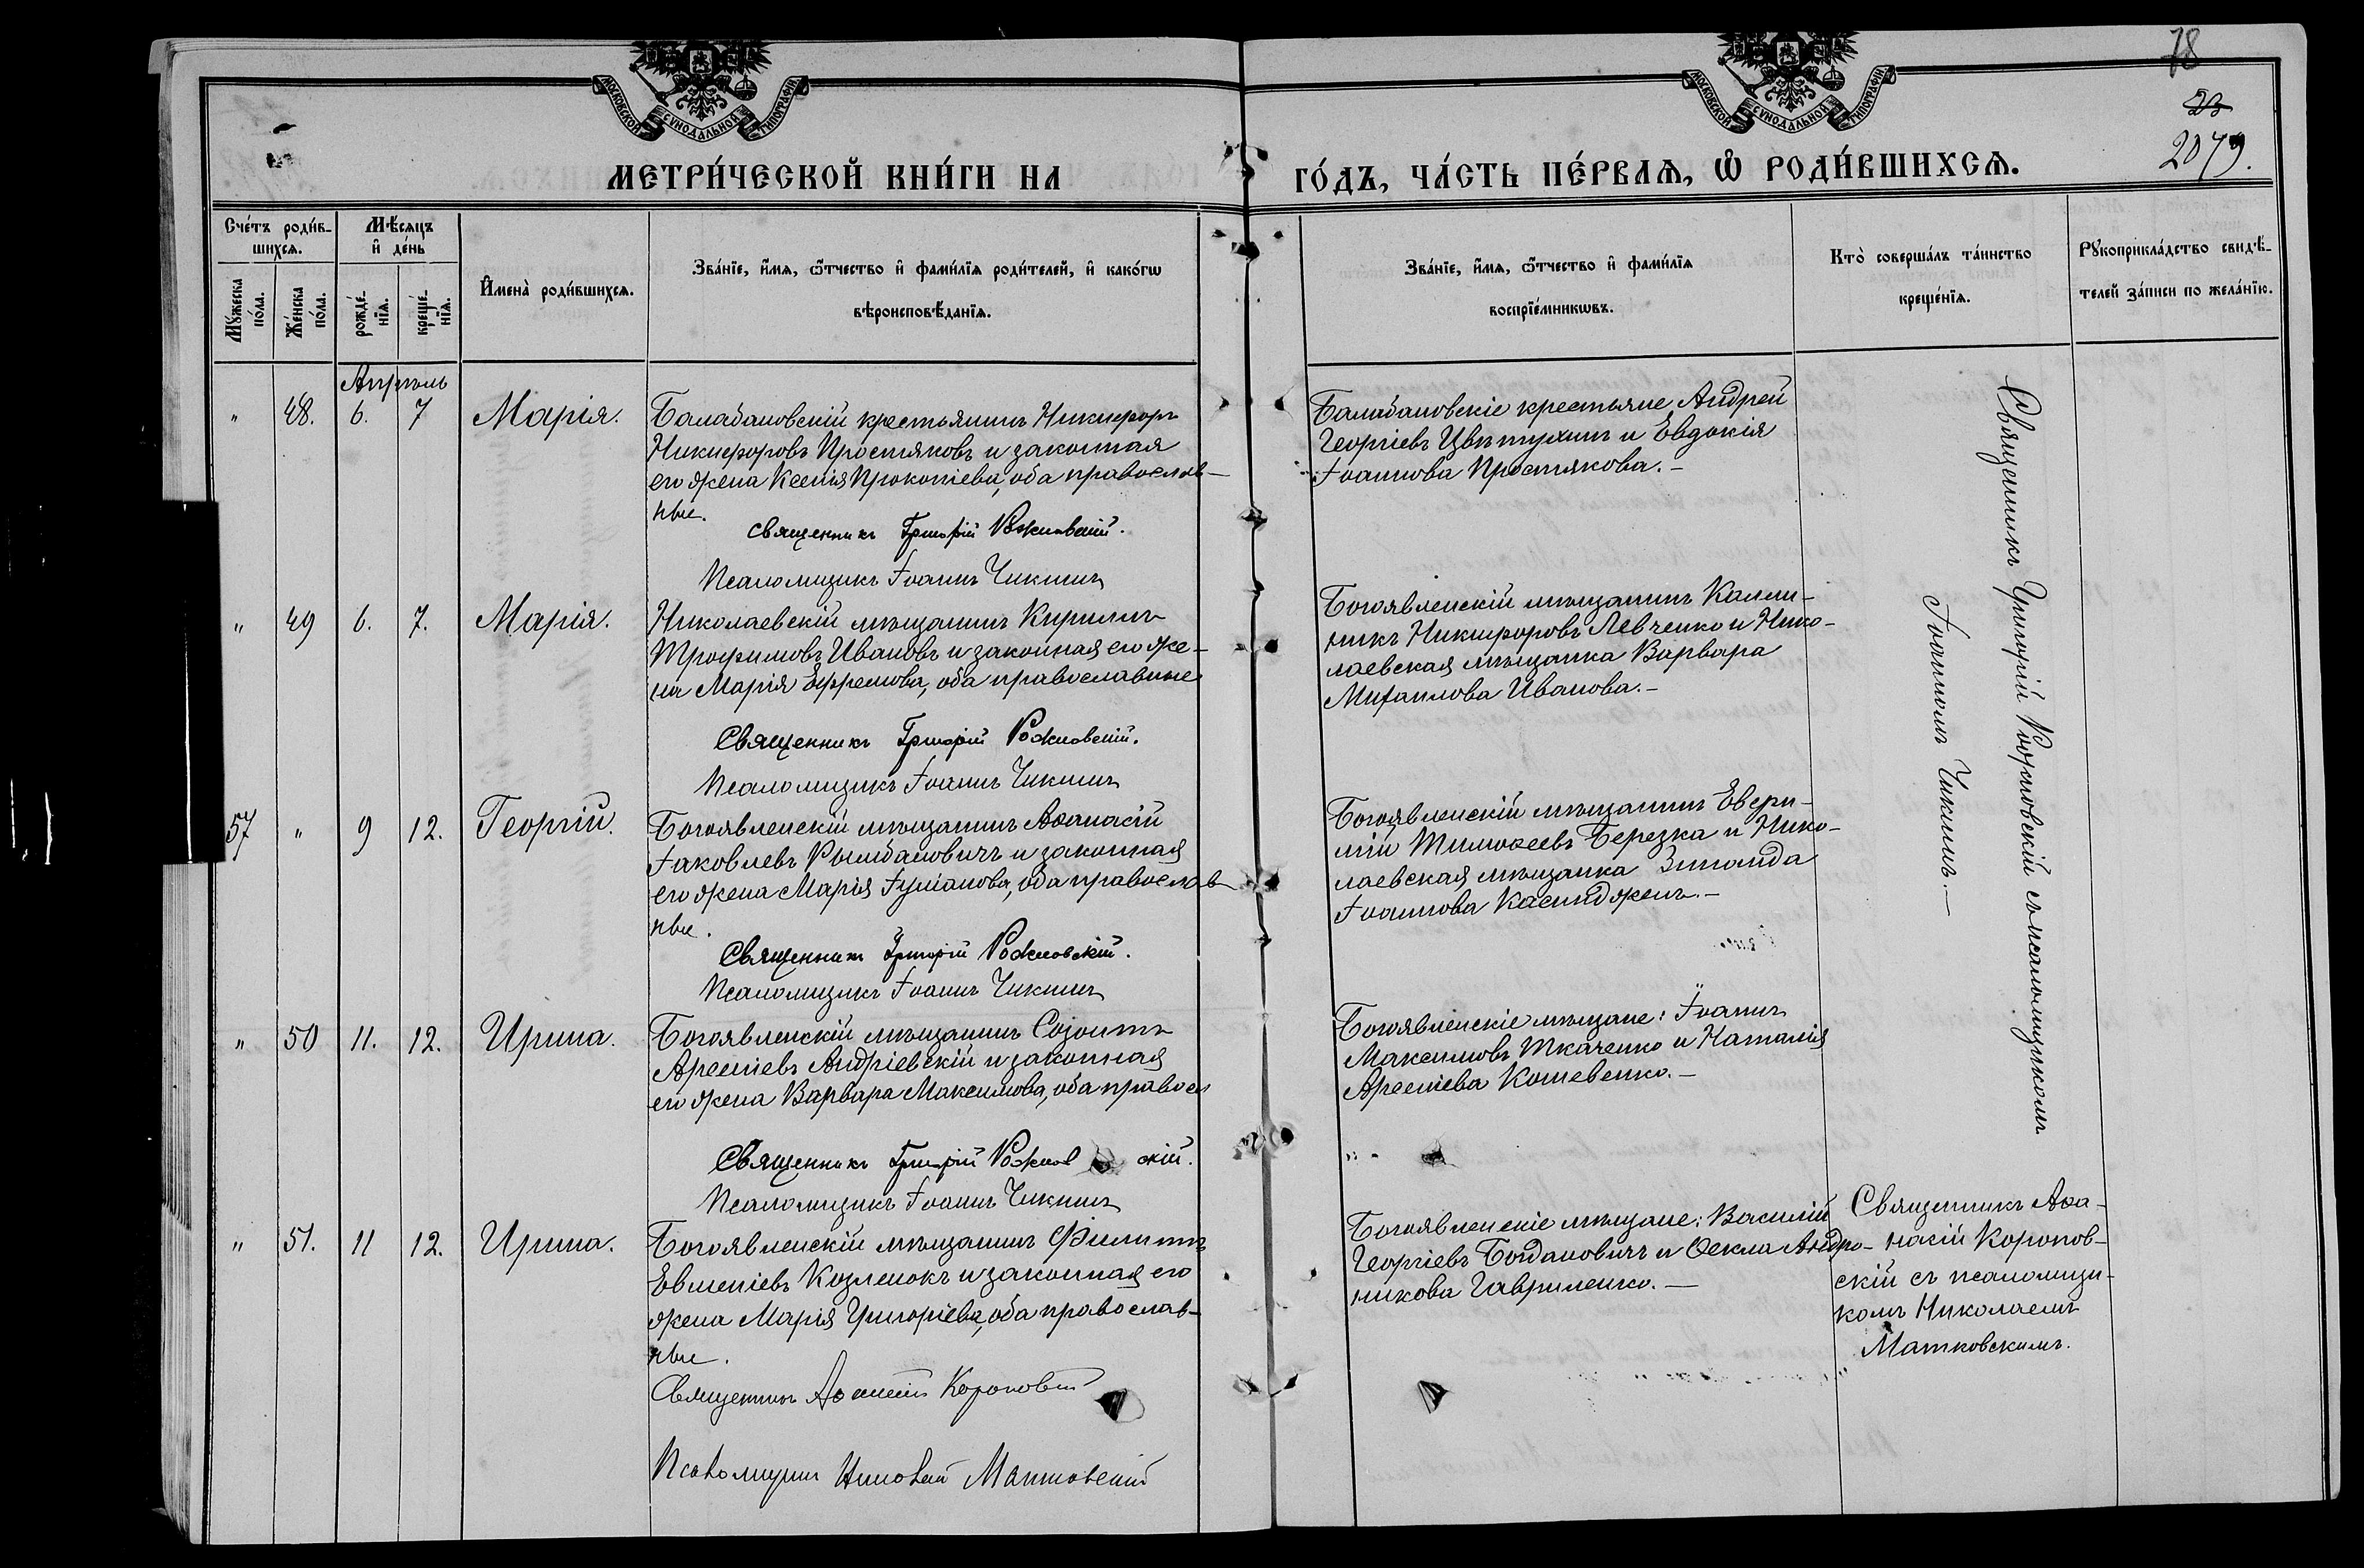 78
23
2079.
МОСКОВСКОЙ СѴНОДАЛЬНОЙ ТИПОГРАФІИ
МОСКОВСКОЙ СѴНОДАЛЬНОЙ ТИПОГРАФІИ
МЕТРИ́ЧЕСКОЙ КНИ́ГИ НА ГО́ДЪ, ЧА́СТЬ ПЕ́РВАѦ, Ѽ РОДИ́ВШИХСѦ.
Сче́тъ роди́в-
шихсѧ.
Мѣ́сѧцъ
и҆ де́нь
Мꙋ́жеска
по́ла.
Же́нска
по́ла.
рожде́-
нїѧ.
креще́-
нїѧ.
И҆мена̀ роди́вшихсѧ.
Зва́нїе, и҆́мѧ, ѻ҆́тчество и҆ фами́лїѧ роди́телей, и҆ како́гѡ
вѣроисповѣ́данїѧ.
Зва́нїе, и҆́мѧ, ѻ҆́тчество и҆ фами́лїѧ
воспрїе́мникѡвъ.
Кто̀ соверша́лъ та́инство
креще́нїѧ.
Рꙋкоприкла́дство свидѣ́-
телей за́писи по жела́нїю.
Апрѣль
" 48. 6. 7 Марія.
Балабановскій крестьянинъ Никифоръ
Никифоровъ Простяковъ и законная
его жена Ксенія Прокопіева, оба православ-
ные.
Священникъ Григорій Рожновскій.
Псаломщикъ Іоаннъ Чикминъ
Балабановскіе крестьяне Андрей
Георгіевъ Цвѣтухинъ и Евдокія
Іоаннова Простякова.-
" 49 6. 7. Марія.
Николаевскій мѣщанинъ Кириллъ
Трофимовъ Ивановъ и законная его же-
на Марія Ефремова, оба православные
Священникъ Григорій Рожновскій.
Псаломщикъ Іоаннъ Чикминъ
Богоявленскій мѣщанинъ Калли-
никъ Никифоровъ Левченко и Нико-
лаевская мѣщанка Варвара
Михаилова Иванова.-
57 " 9 12. Георгій.
Богоявленскій мѣщанинъ Аѳанасій
Іаковлевъ Рымбановичъ и законная
его жена Марія Іуліанова, оба православ
ные.
Священникъ Григорій Рожновскій.
Псаломщикъ Іоаннъ Чикминъ
Богоявленскій мѣщанинъ Евери-
лій Тимоѳеевъ Березка и Нико-
лаевская мѣщанка Зинаида
Іоаннова
" 50 11. 12. Ирина.
Богоявленскій мѣщанинъ Созонтъ
Арсеніевъ Андріевскій и законная
его жена Варвара Максимова, оба правосл
Священникъ Григорій Рожновскій.
Псаломщикъ Іоаннъ Чикминъ
Богоявленскіе мѣщане: Іоаннъ
Максимовъ Ткаченко и Наталія
Арсеніева Кошевенко.-
Священникъ Григорій Рожновскій съ псаломщикомъ
Іоанномъ Чикминъ.-
" 51. 11 12. Ирина.
Богоявленскій мѣщанинъ Филиппъ
Евменіевъ Козленокъ и законная его
жена Марія Григоріева, оба православ-
ные.
Священникъ Аѳанасій Короповскій
Псаломщикъ Николай Матковскій
Богоявленскіе мѣщане: Василій
Георгіевъ Богдановичъ и Ѳекла Андро-
никова Гавриленко.-
Священникъ Аѳа-
насій Коропов-
скій съ псаломщи-
комъ Николаемъ
Матковскимъ.